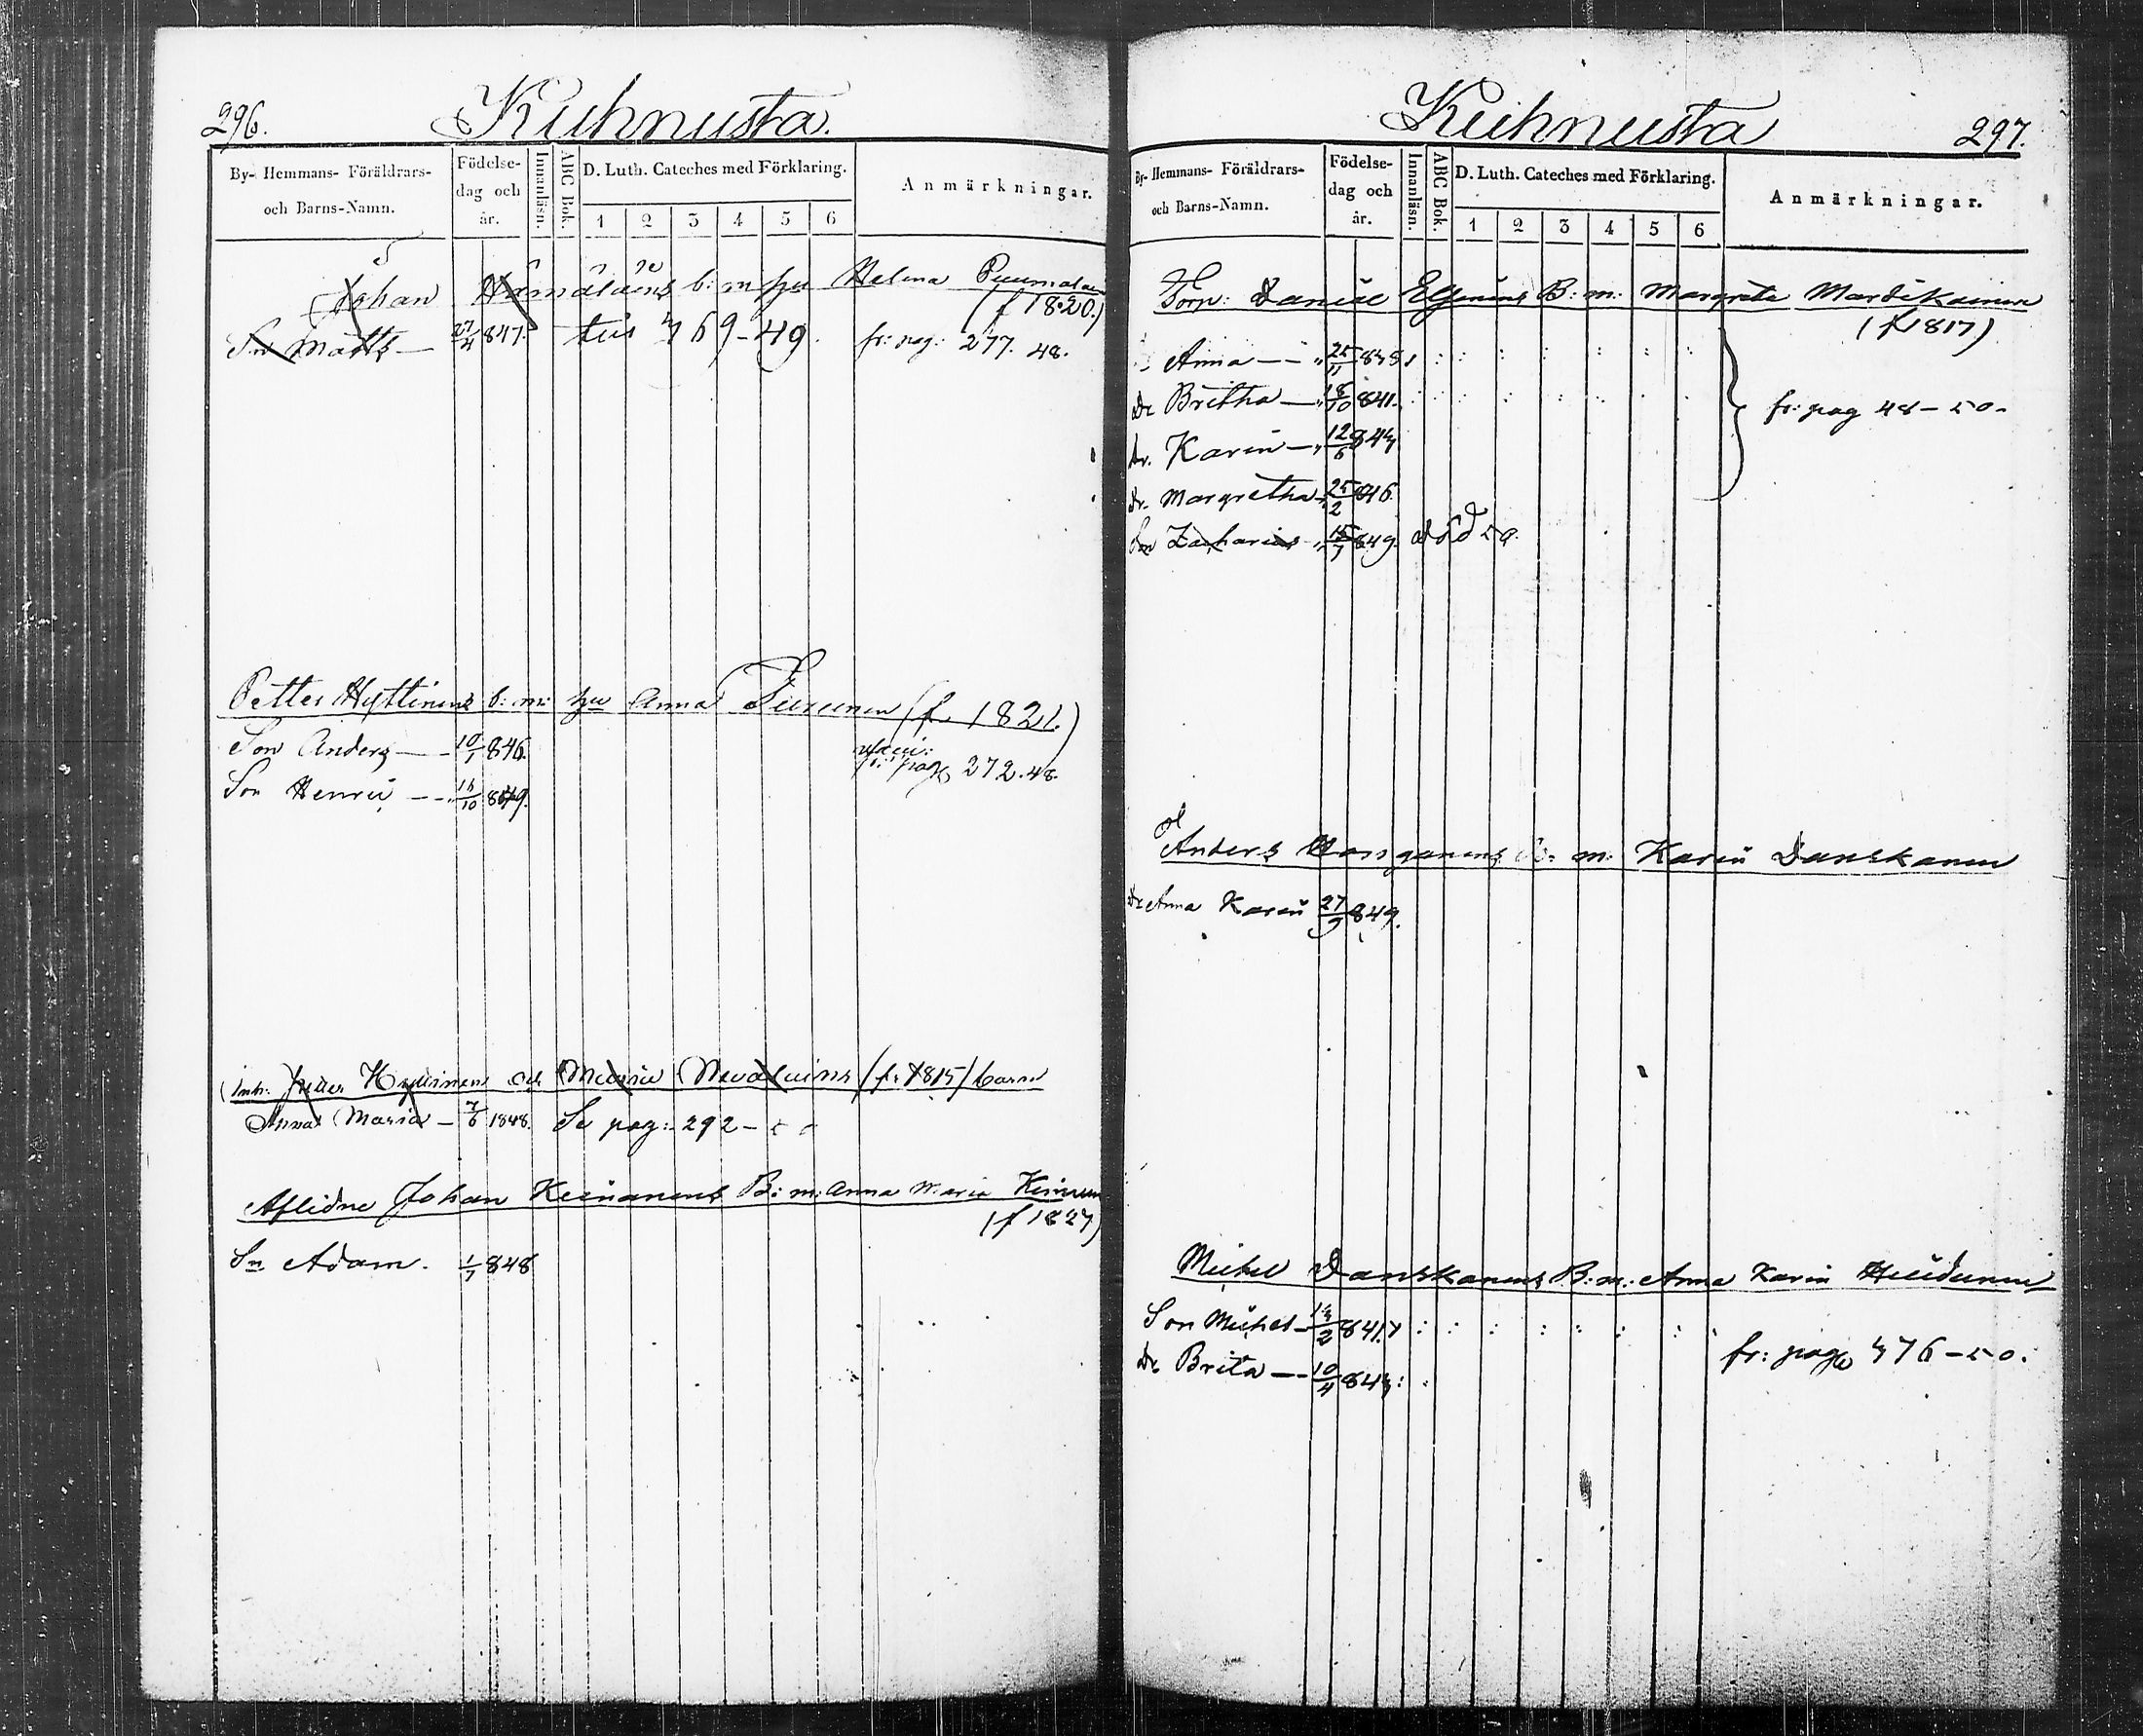 296. Kuhnusta.
By- Hemmans- Föräldrars- och Barns-Namn.
Födelse-dag och år.
Innanläsn.
ABC Bok.
D. Luth. Cateches med Förklaring.
1 2 3 4 5 6
Anmärkningar.
Johan Hämäläin&s b: m: hu Helena Puumalain
(f 1820.)
Sn Matts — 27/4 847. till 469-49. fr: pag: 277. 48.
Petter Hyttinens b: m: hu Anna Piirainen (f. 1821.)
Son Anders — 10/1 846.
fr: pag 272.48.
Son Henric — 16/10 849.
Inh: Petter Hyttinens och Maria Nevalainens (f. 1815) barn
Anna Maria — 7/6 1848. Se pag: 292 - 50
Aflidne Johan Keinänens B: m: Anna Maria
(f 1827)
Sn Adam. 1/7 848
Kuhnusta 297.
By- Hemmans- Föräldrars- och Barns-Namn.
Födelse-dag och år.
Innanläsn.
ABC Bok.
D. Luth. Cateches med Förklaring.
1 2 3 4 5 6
Anmärkningar.
Torp: Daniel Elgenens B: m: Margreta Mardikainen
(f 1817)
Anna — 25/11 838
Dr Britha — 18/10 841.
fr: pag 48-50-
Dr. Karin — 12/6 844
Dr. Margretha 25/2 846
Son Zacharias 15/7 849. död 50.
Anders B: m: Karin Danskanen
Dr Anna Karin 27/9 849.
Michel Danskanens B: m: Anna Karin
Son Michel — 14/2 841
Dr Brita — 10/4 844
fr: pag 476-50.